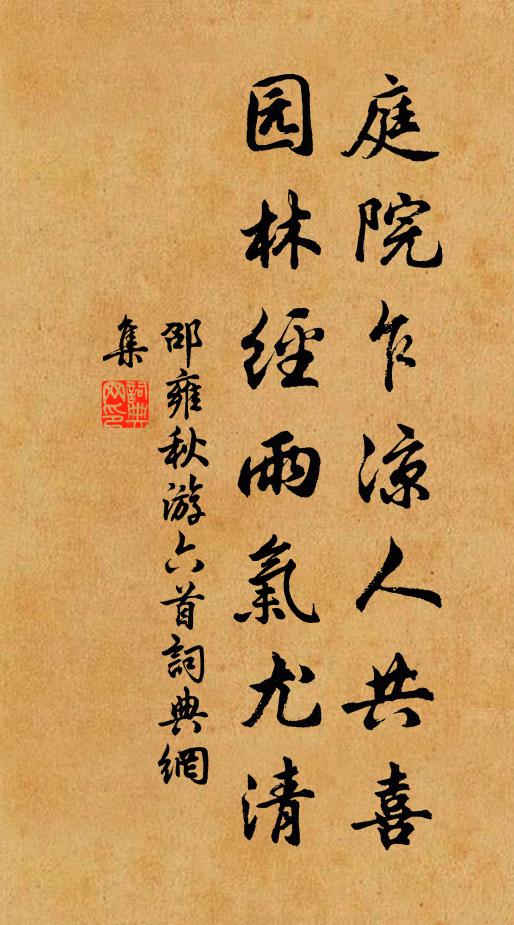 庭院乍凉人共喜
园林經雨氣尤清
邵雍秋游六首詞典網
集
詞典网印